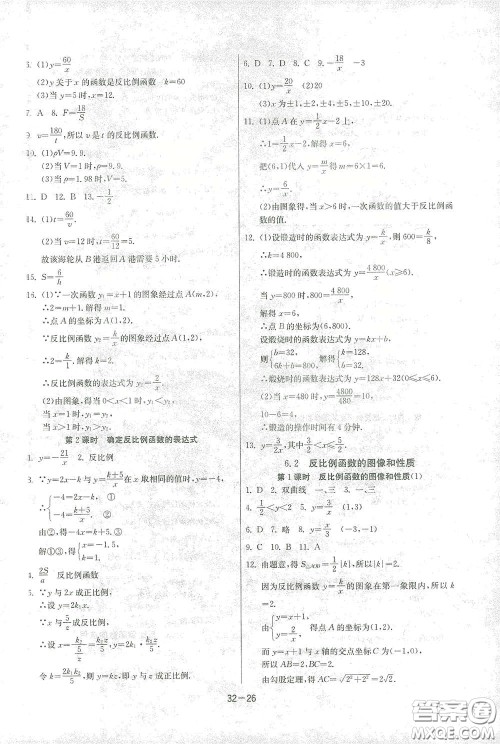 5. (1)y=60/x
(2)y 关于 x 的函数是反比例函数 k=60
(3)当 y=5 时,x=12.
7. A 8. F=18/S
9. v=180/t,所以 v 是 t 的反比例函数.
10. (1)ρV=9.9.
(2)当 V=1 时,ρ=9.9.
(3)当 ρ=1.98 时,V=5.
11. D 12. A 13. -1/2
14. (1)t=60/v.
(2)当 v=12 时,t=60/12=5.
故该海轮从 B 港返回 A 港需要 5 小时.
15. S=6/h
16. (1)∵一次函数 y₁=x+1 的图象经过点 A(m,2),
∴2=m+1. ∴m=1.
∴点 A 的坐标为(1,2).
∵反比例函数 y₂=k/x 的图象经过点 A(1,2),
∴2=k/1. ∴k=2.
∴反比例函数的表达式为 y₂=2/x.
(2)由图象,得当 0<x<1 时,y₁<y₂;
当 x=1 时,y₁=y₂;
当 x>1 时,y₁>y₂.
第 2 课时 确定反比例函数的表达式
1. y=-21/x 2. 反比例
3. ∵y=2x-k 与 y=(k+5)/x 在 x 取相同的值时,
∴{-4=2x-k,①
-4=(k+5)/x.②
由①,得 k=2x+4.③
由②,得-4x=k+5.④
解③④,得{x=-1.5,
k=1.
4. 2S/a 反比例函数
5. ∵y 与 2x 成正比例,
∴设 y=2k₁x.
∵x 与 z/5 成反比例,
∴设 x=
∴y=2k₁x=
令 k=2k₁k₂,
6. D 7. D 8. C 9. -18/x -3
10. (1)y=20/x (2)20
(3)x=±1,±2,±4,±5,±10,±20.
11. (1)∵点 A 在 y=1/2x-2 上,
∴1=1/2x-2,解得 x=6.
把(6,1)代入 y=m/x,得 m=6×1=6.
∴y=6/x.
(2)由图象得,当 x>6 时,一次函数的值大于反比例函
数的值.
12. (1)设锻造时的函数表达式为 y=k/x,则 600=k/8,
∴k=4800.
∴锻造时的函数表达式为 y=4800/x(x≥6).
当 y=800 时,800=4800/x,
解得 x=6.
∴点 B 的坐标为(6,800).
设煅烧时的函数表达式为 y=kx+b,
则{b=32,
6k+b=800,解得{k=128,
b=32.
∴煅烧时的函数表达式为 y=128x+32(0≤x≤6).
(2)∵x=4800÷480=10,
10-6=4,
∴锻造的操作时间有 4 分钟.
13. y=3/2x,其中
6.2 反比例函数的图像和性质
第 1 课时 反比例函数的图像和性质(1)
1. D 2. 双曲线 一、三 3. 一、三
5. y=3/x
6. D 7. 略 8. y=3/x
9. C 10. B 11. A
12. 由题意,得 S△AOB=1/2|k|,所以 k=2.
因为反比例函数 y=k/x 的图象在第一象限内,所以
k=2.
由{y=x+1,
y=2/x, 得点 A 的坐标为(1,2).
因为 y=x+1 与 x 轴的交点为 C(-1,0),
所以 AB=2,BC=2.
由勾股定理,得 AC=√(2²+2²)=2√2.
32－26